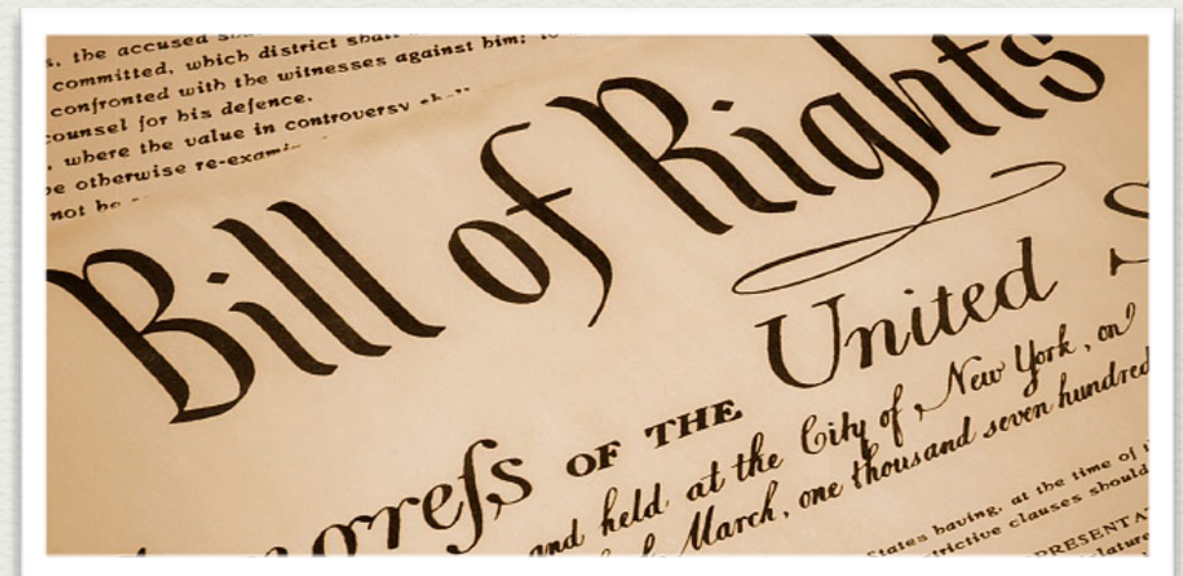 s, the accused
committed, which district shall
confronted with the witnesses against him; to
counsel for his defence.
, where the value in controversy
be otherwise re-exami
not be
Bill of Rights
United S
ngreſs OF THE
and held at the City of New York, on
March, one thousand seven hundred
States having, at the time of
strictive clauses should
PRESENTA
lature